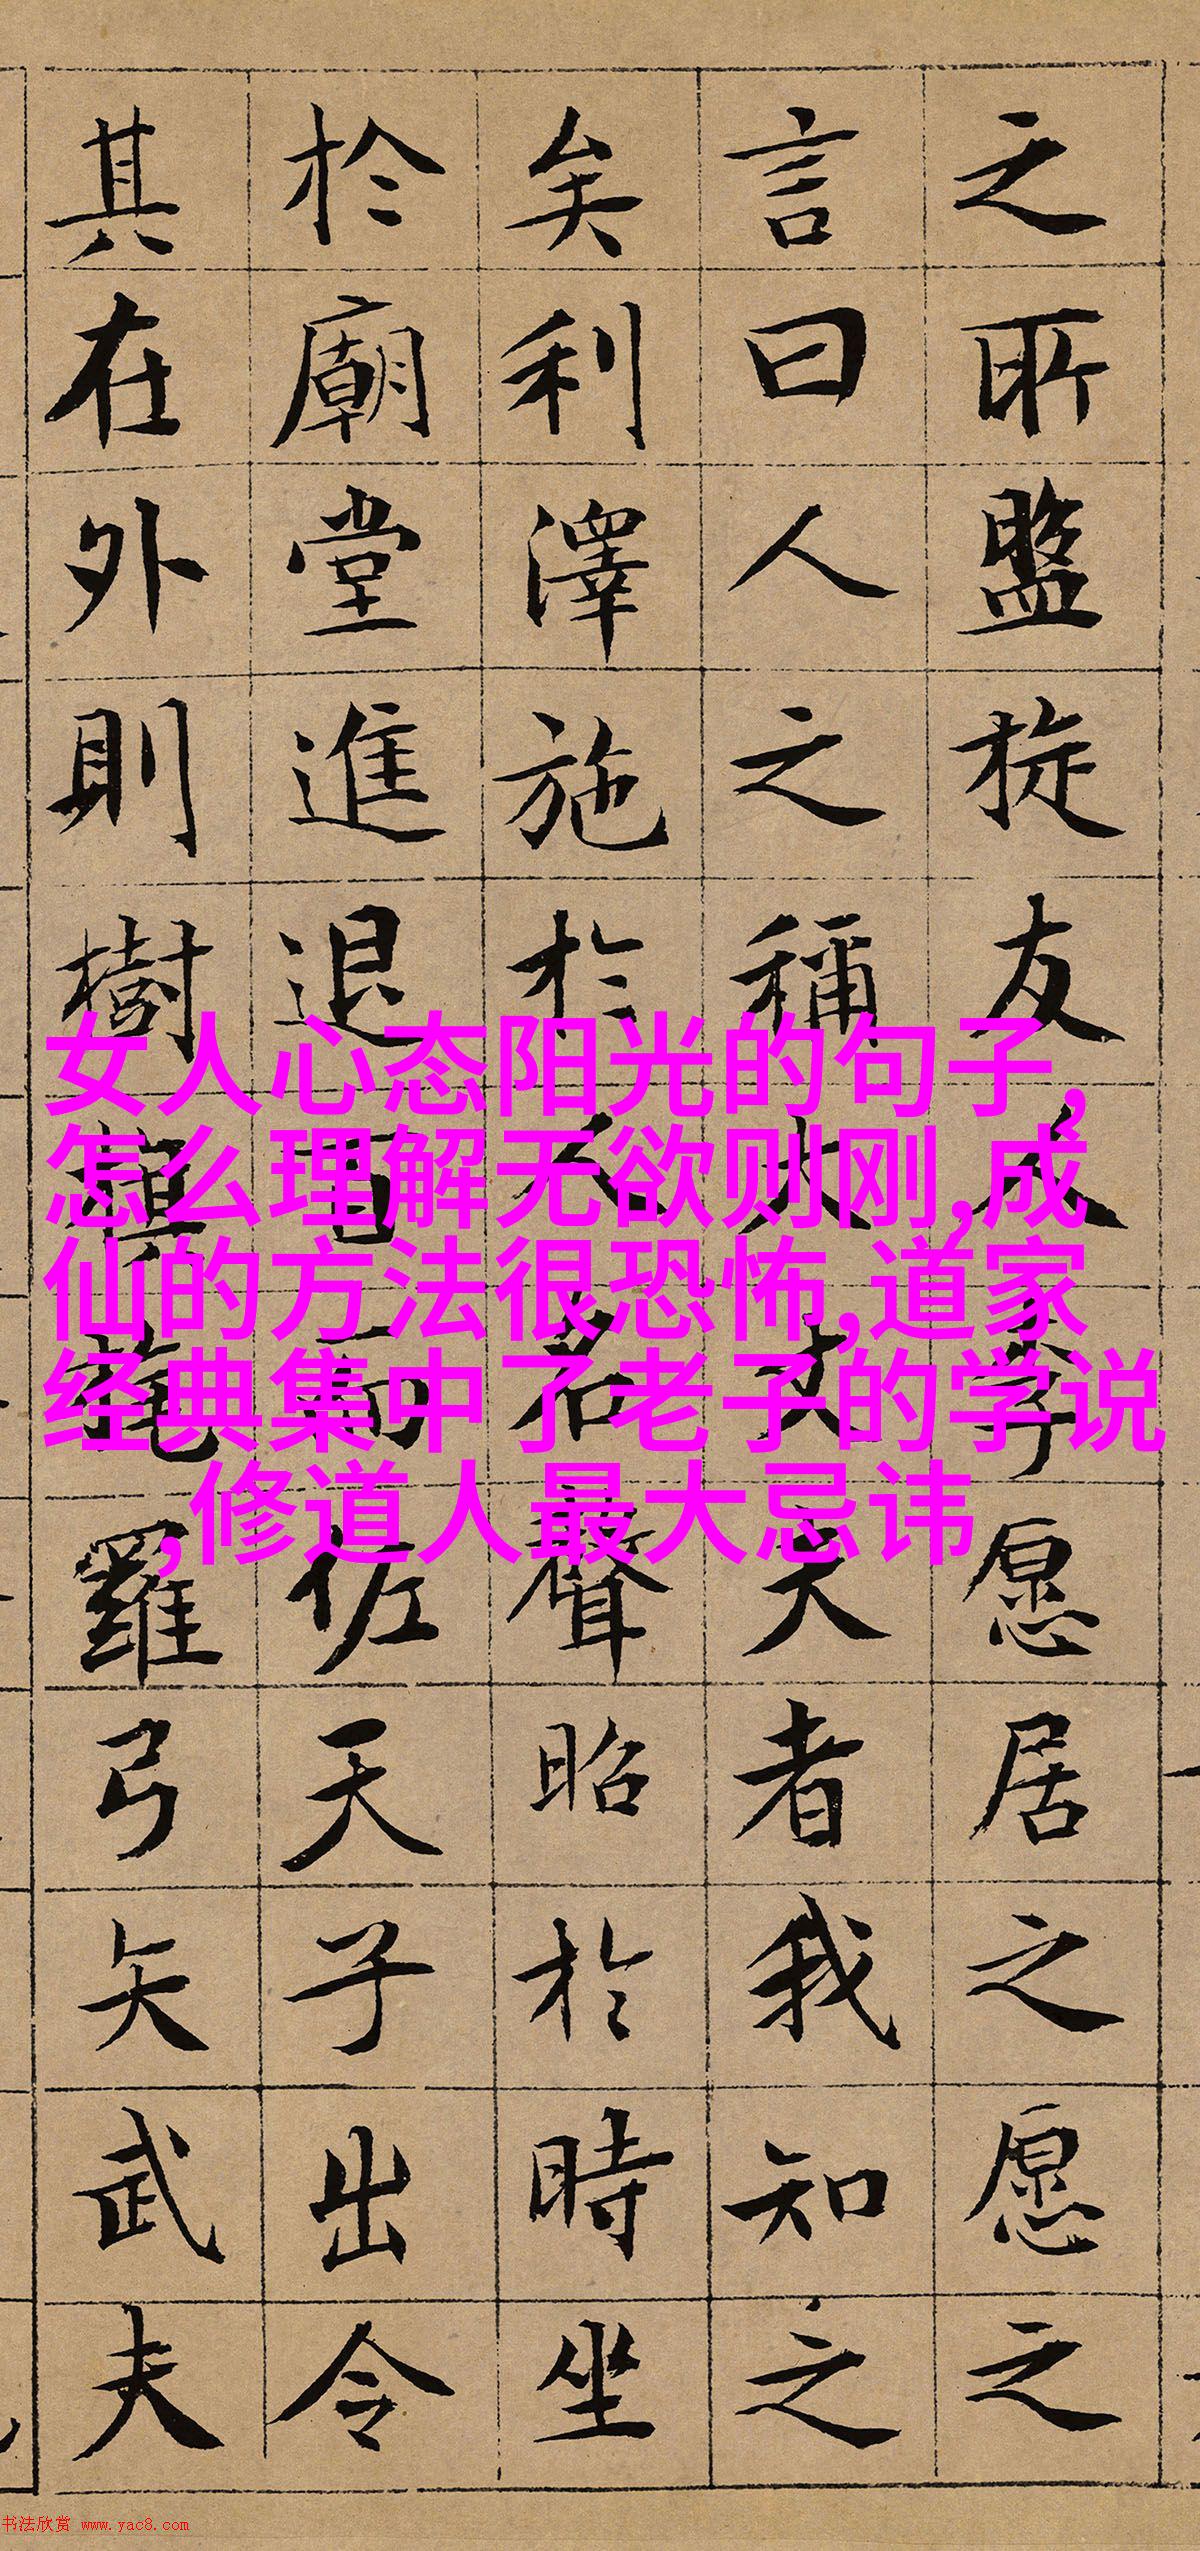 之所盤旋友人李愿居之愿之
言曰人之稱大丈夫者我知之
矣利澤施於人名聲昭於時坐
於廟堂進退百而佐天子出令
其在外則樹旄羅弓矢武夫
女人心态阳光的句子,
怎么理解无欲则刚,成
仙的方法很恐怖,道家
经典集中了老子的学说
,修道人最大忌讳
书法欣赏 www.yac8.com